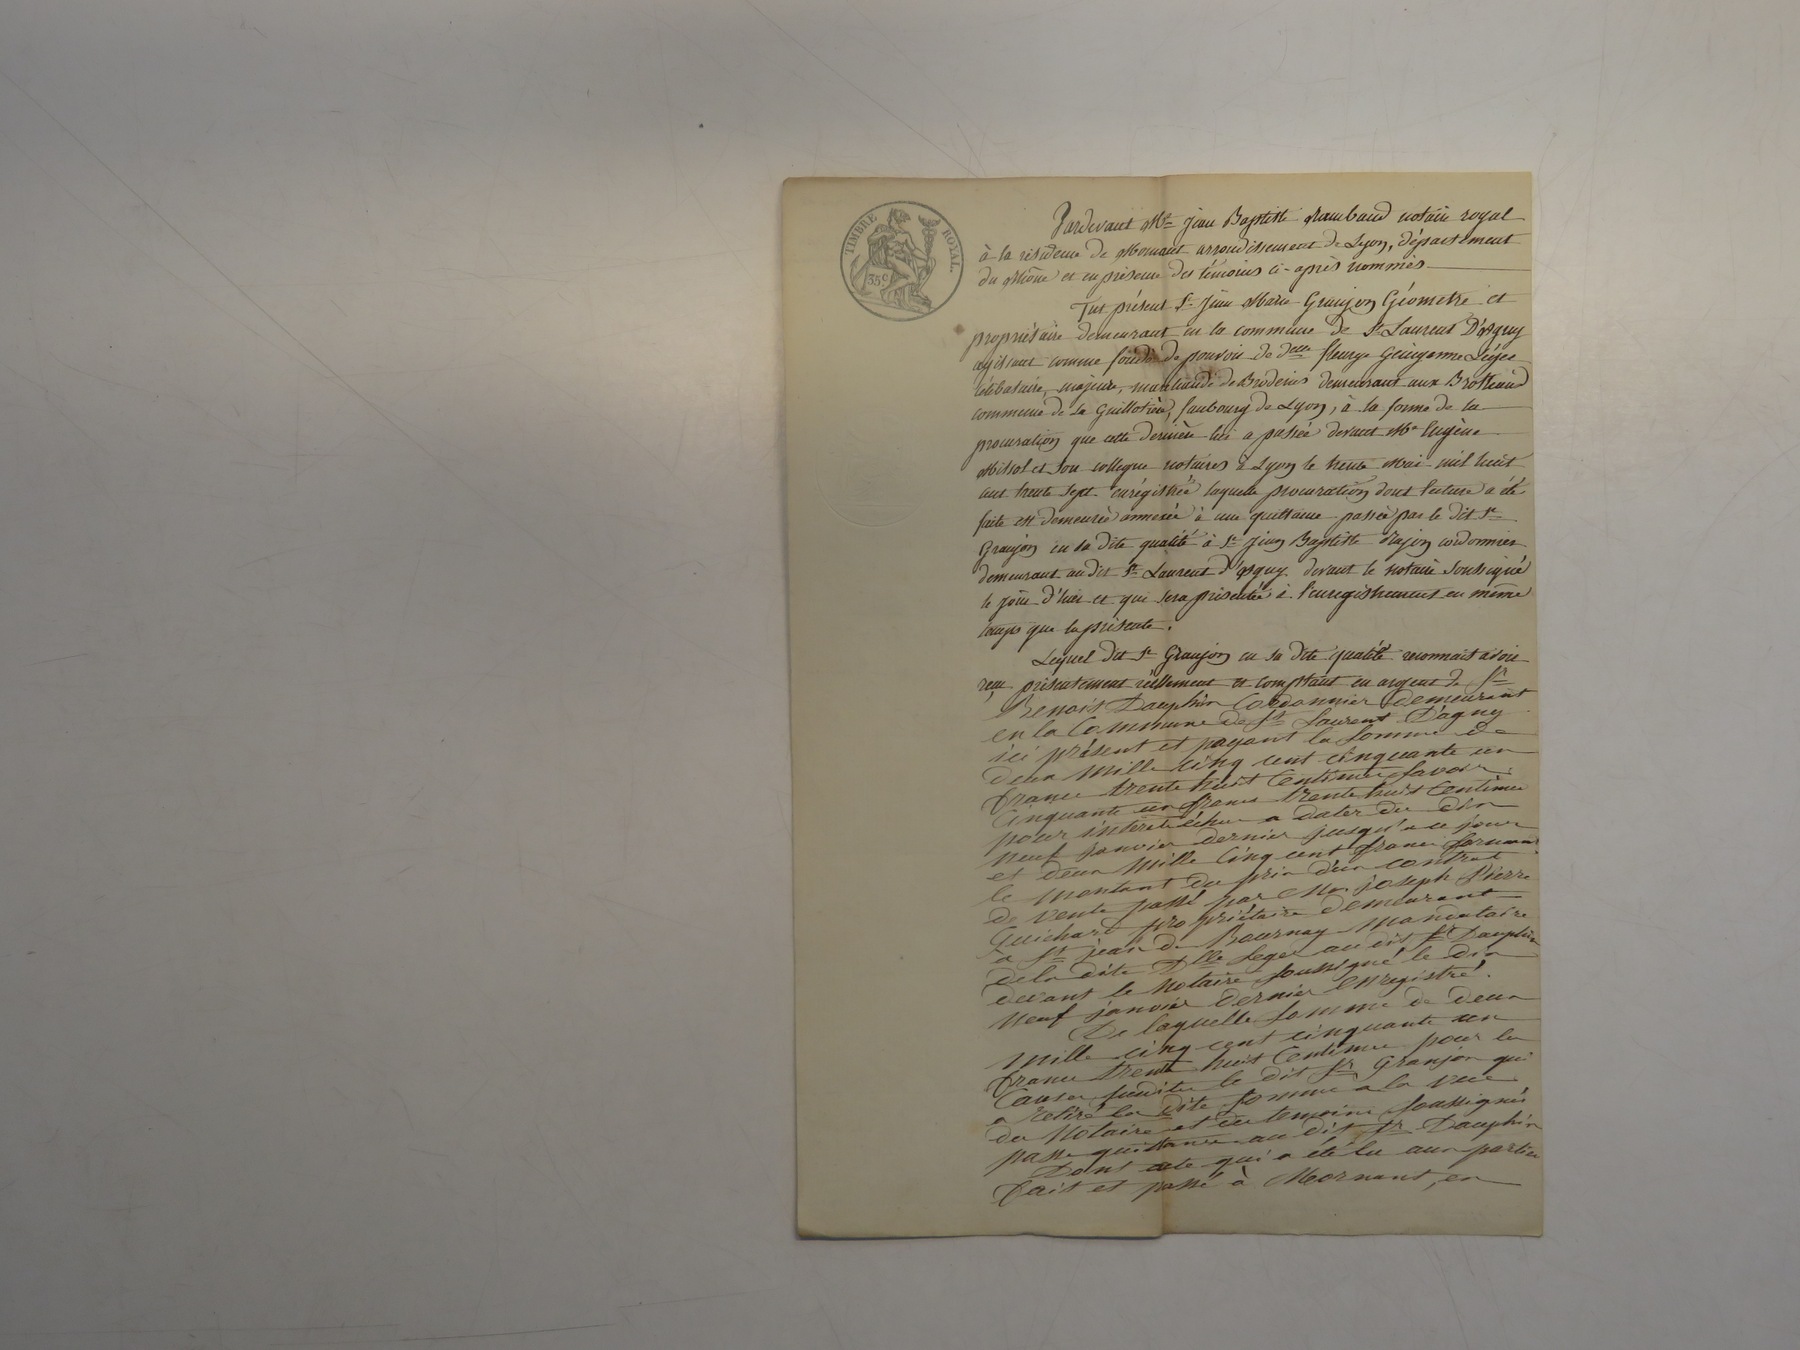 TIMBRE ROYAL.
35 c
Pardevant Me Jean Baptiste Rambaud notaire royal
à la résidence de Mornant arrondissement de Lyon, département
du Rhône et en présence des témoins ci-après nommés
Fut présent Sr Jean Marie Granjon Géomètre et
propriétaire demeurant en la commune de St Laurent D'agny
agissant comme fondé de pouvoir de delle fleurye Léger
célibataire, majeure, marchande de Broderies demeurant aux Brotteaux
commune de la Guillotière, faubourg de Lyon, à la forme de la
procuration que cette dernière lui a passée devant Me Eugène
et son collegue notaires à Lyon le trente Mai mil huit
cent trente sept enrégistrée laquelle procuration dont lecture a été
faite est demeurée annexée à une quittance passée par le dit Sr
Granjon en sa dite qualité à Sr Jean Baptiste Razon cordonnier
demeurant au dit St Laurent d'agny devant le notaire soussigné
le jour d'hier et qui sera présentée à l'enregistrement en même
temps que la présente.
Lequel dit Sr Granjon en sa dite qualité reconnait avoir
reçu présentement réellement et comptant en argent de Sr
Benoit Dauphin Cordonnier demeurant
en la Commune de St Laurent D'agny
ici présent et payant la somme de
deux mille cinq cent cinquante un
francs trente huit Centimes savoir
Cinquante un francs trente huit Centimes
pour intérêt échu a dater du dix
neuf janvier dernier jusqu'a ce jour
et deux mille Cinq cent francs formant
le montant du prix d'un contrat
de vente passé par Mr joseph Pierre
Guichard propriétaire demeurant
a St jean de Bournay mandataire
de la dite Dlle Leger au dit Sr Dauphin
devant le Notaire soussigné le dix
neuf janvier dernier enregistré.
De laquelle somme de deux
mille cinq cent cinquante un
francs trente huit Centimes pour les
Causes susdites le dit Sr Granjon qui
a retiré la dite somme a la vue
du Notaire et des temoins soussignés
passe quittance au dit Sr Dauphin
Dont acte qui a été lu aux parties
fait et passé à Mornant, en